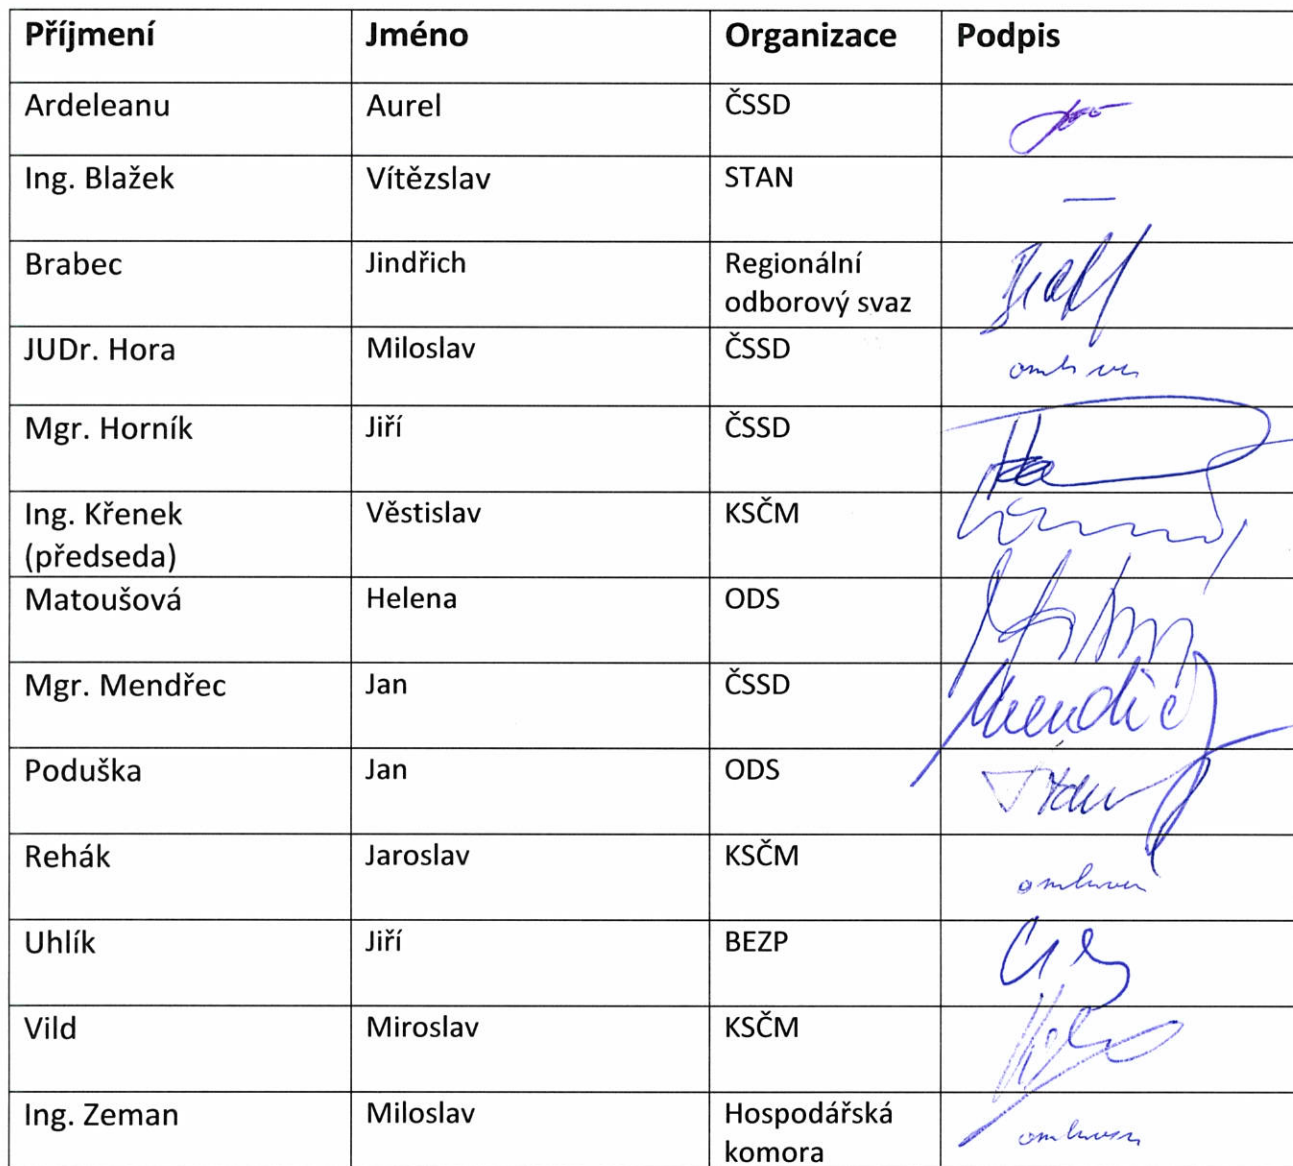 Příjmení Jméno Organizace Podpis
Ardeleanu Aurel ČSSD
Ing. Blažek Vítězslav STAN —
Brabec Jindřich Regionální
odborový svaz
JUDr. Hora Miloslav ČSSD
Mgr. Horník Jiří ČSSD
Ing. Křenek Věstislav KSČM
(předseda)
Matoušová Helena ODS
Mgr. Mendřec Jan ČSSD
Poduška Jan ODS
Rehák Jaroslav KSČM
Uhlík Jiří BEZP
Vild Miroslav KSČM
Ing. Zeman Miloslav Hospodářská
komora